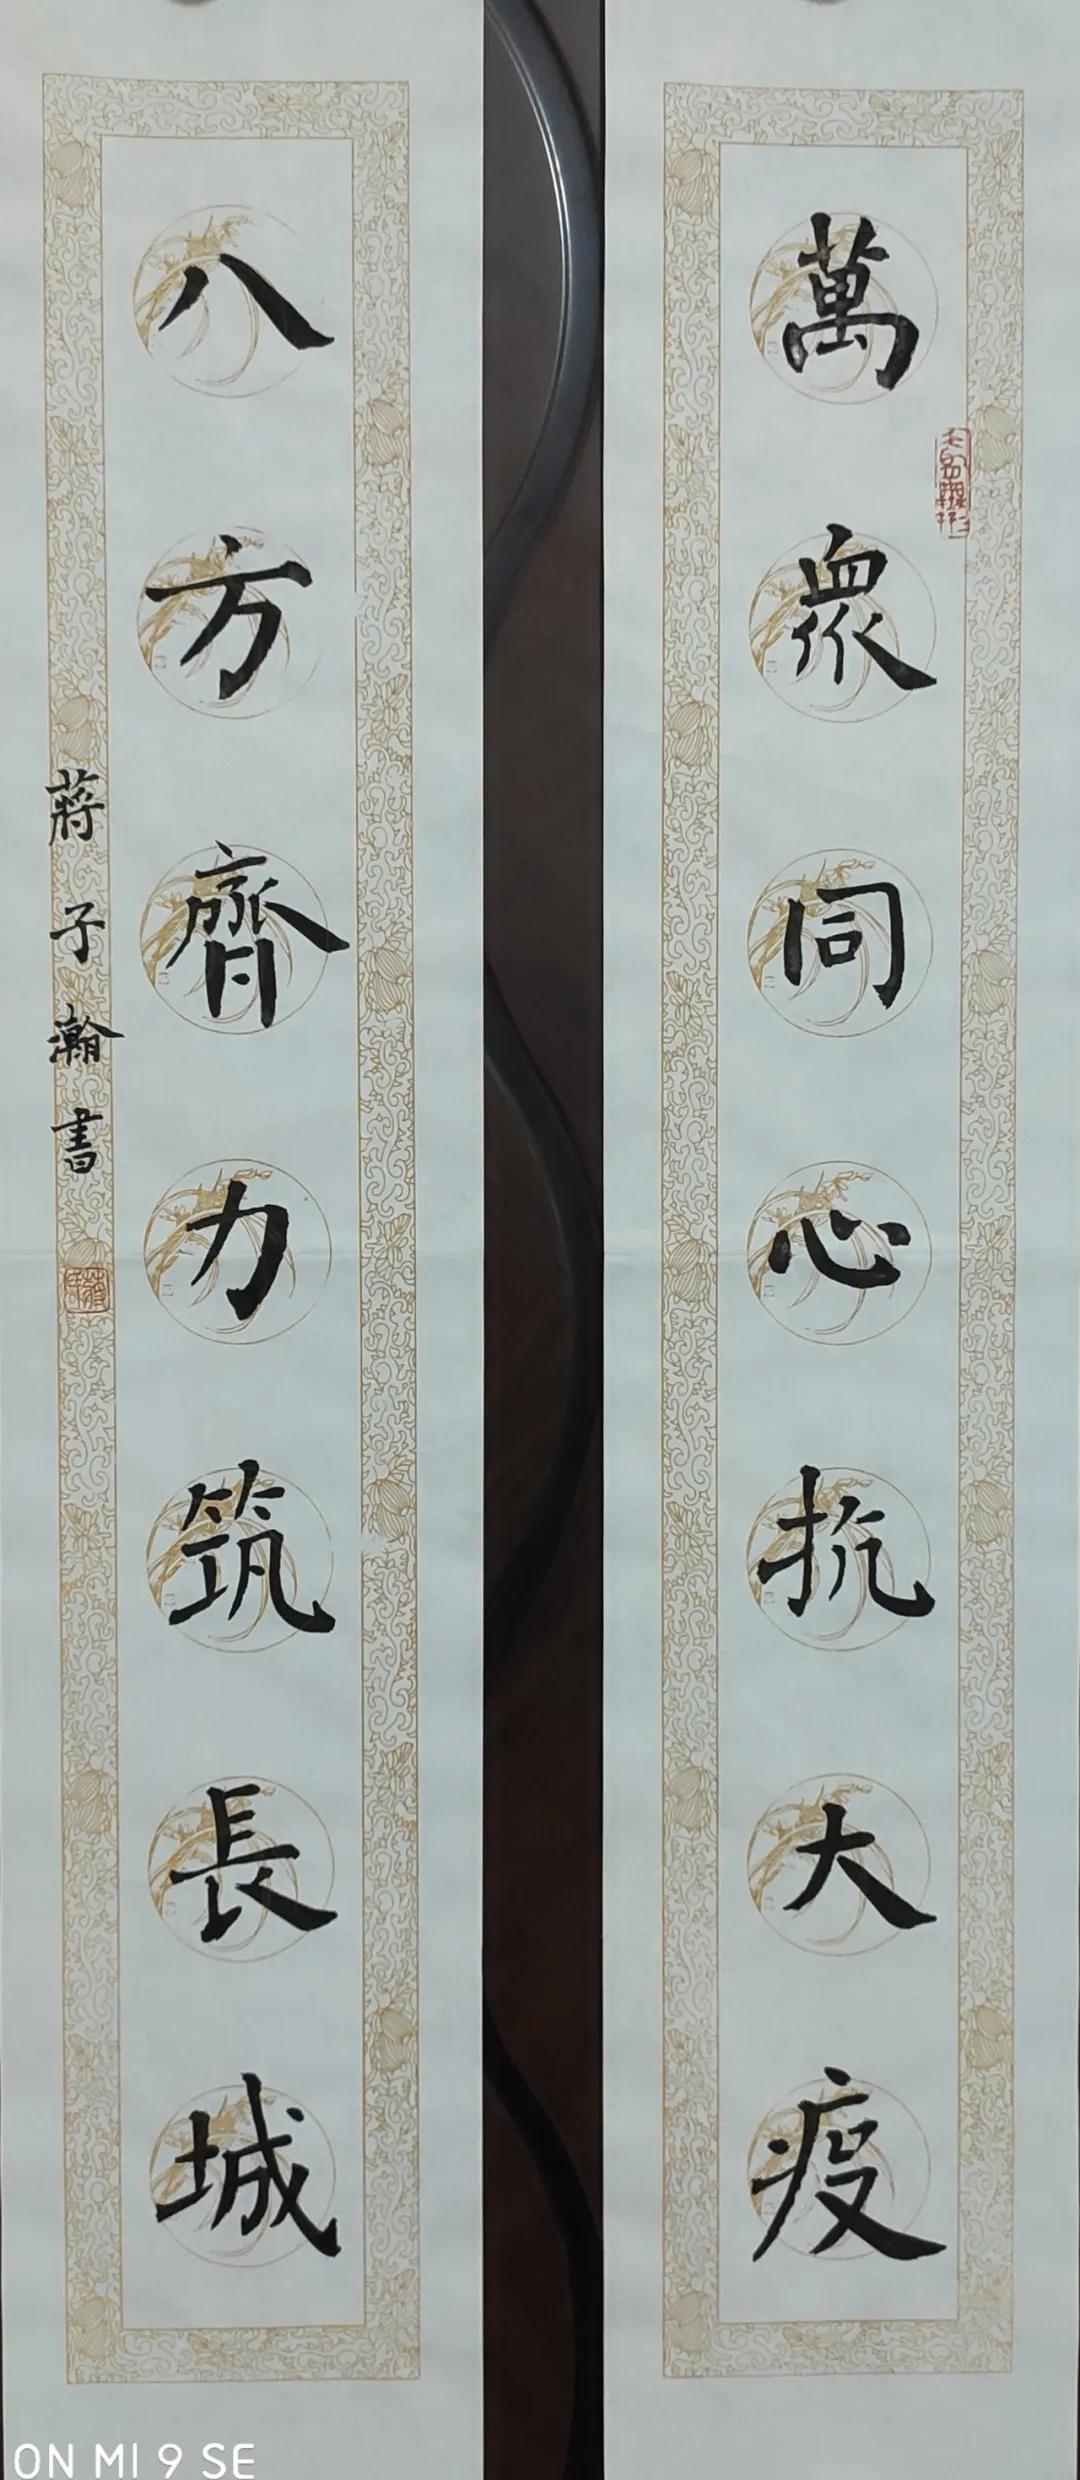 萬眾同心抗大疫
八方齊力筑長城
蔣子瀚書
ON MI 9 SE